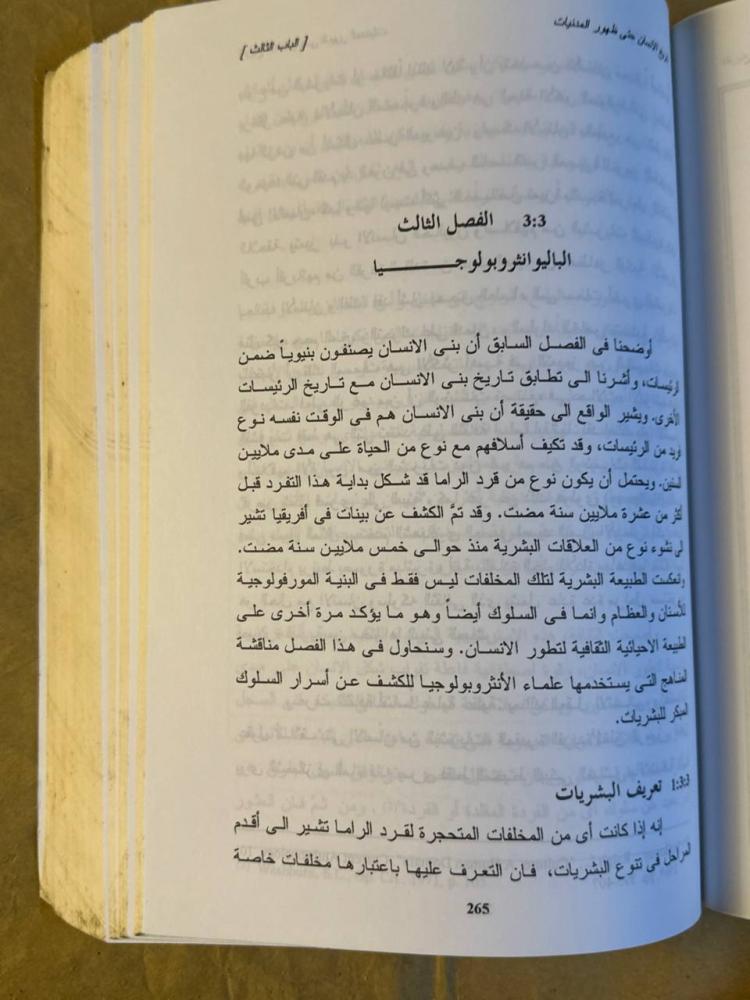 تاريخ الانسان حتى ظهور المدنيات
[ الباب الثالث ]
3:3 الفصل الثالث
الباليوانثروبولوجـــــــيا
أوضحنا فى الفصل السابق أن بنى الانسان يصنفون بنيوياً ضمن
الرئيسات، وأشرنا الى تطابق تاريخ بنى الانسان مع تاريخ الرئيسات
الأخرى. ويشير الواقع الى حقيقة أن بنى الانسان هم فى الوقت نفسه نوع
فريد من الرئيسات، وقد تكيف أسلافهم مع نوع من الحياة على مدى ملايين
السنين. ويحتمل أن يكون نوع من قرد الراما قد شكل بداية هذا التفرد قبل
أكثر من عشرة ملايين سنة مضت. وقد تمَّ الكشف عن بينات فى أفريقيا تشير
الى نشوء نوع من العلاقات البشرية منذ حوالى خمس ملايين سنة مضت.
وانعكست الطبيعة البشرية لتلك المخلفات ليس فقط فى البنية المورفولوجية
للأسنان والعظام وانما فى السلوك أيضاً وهو ما يؤكد مرة أخرى على
الطبيعة الاحيائية الثقافية لتطور الانسان. وسنحاول فى هذا الفصل مناقشة
المناهج التى يستخدمها علماء الأنثروبولوجيا للكشف عن أسرار السلوك
المبكر للبشريات.
1:3:3 تعريف البشريات
إنه إذا كانت أى من المخلفات المتحجرة لقرد الراما تشير الى أقدم
المراحل فى تنوع البشريات، فان التعرف عليها باعتبارها مخلفات خاصة
265